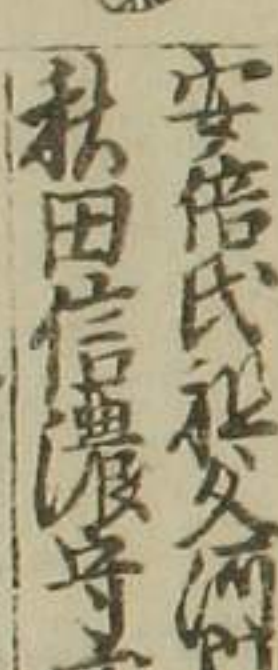 安倍氏祖父河内
秋田信濃守